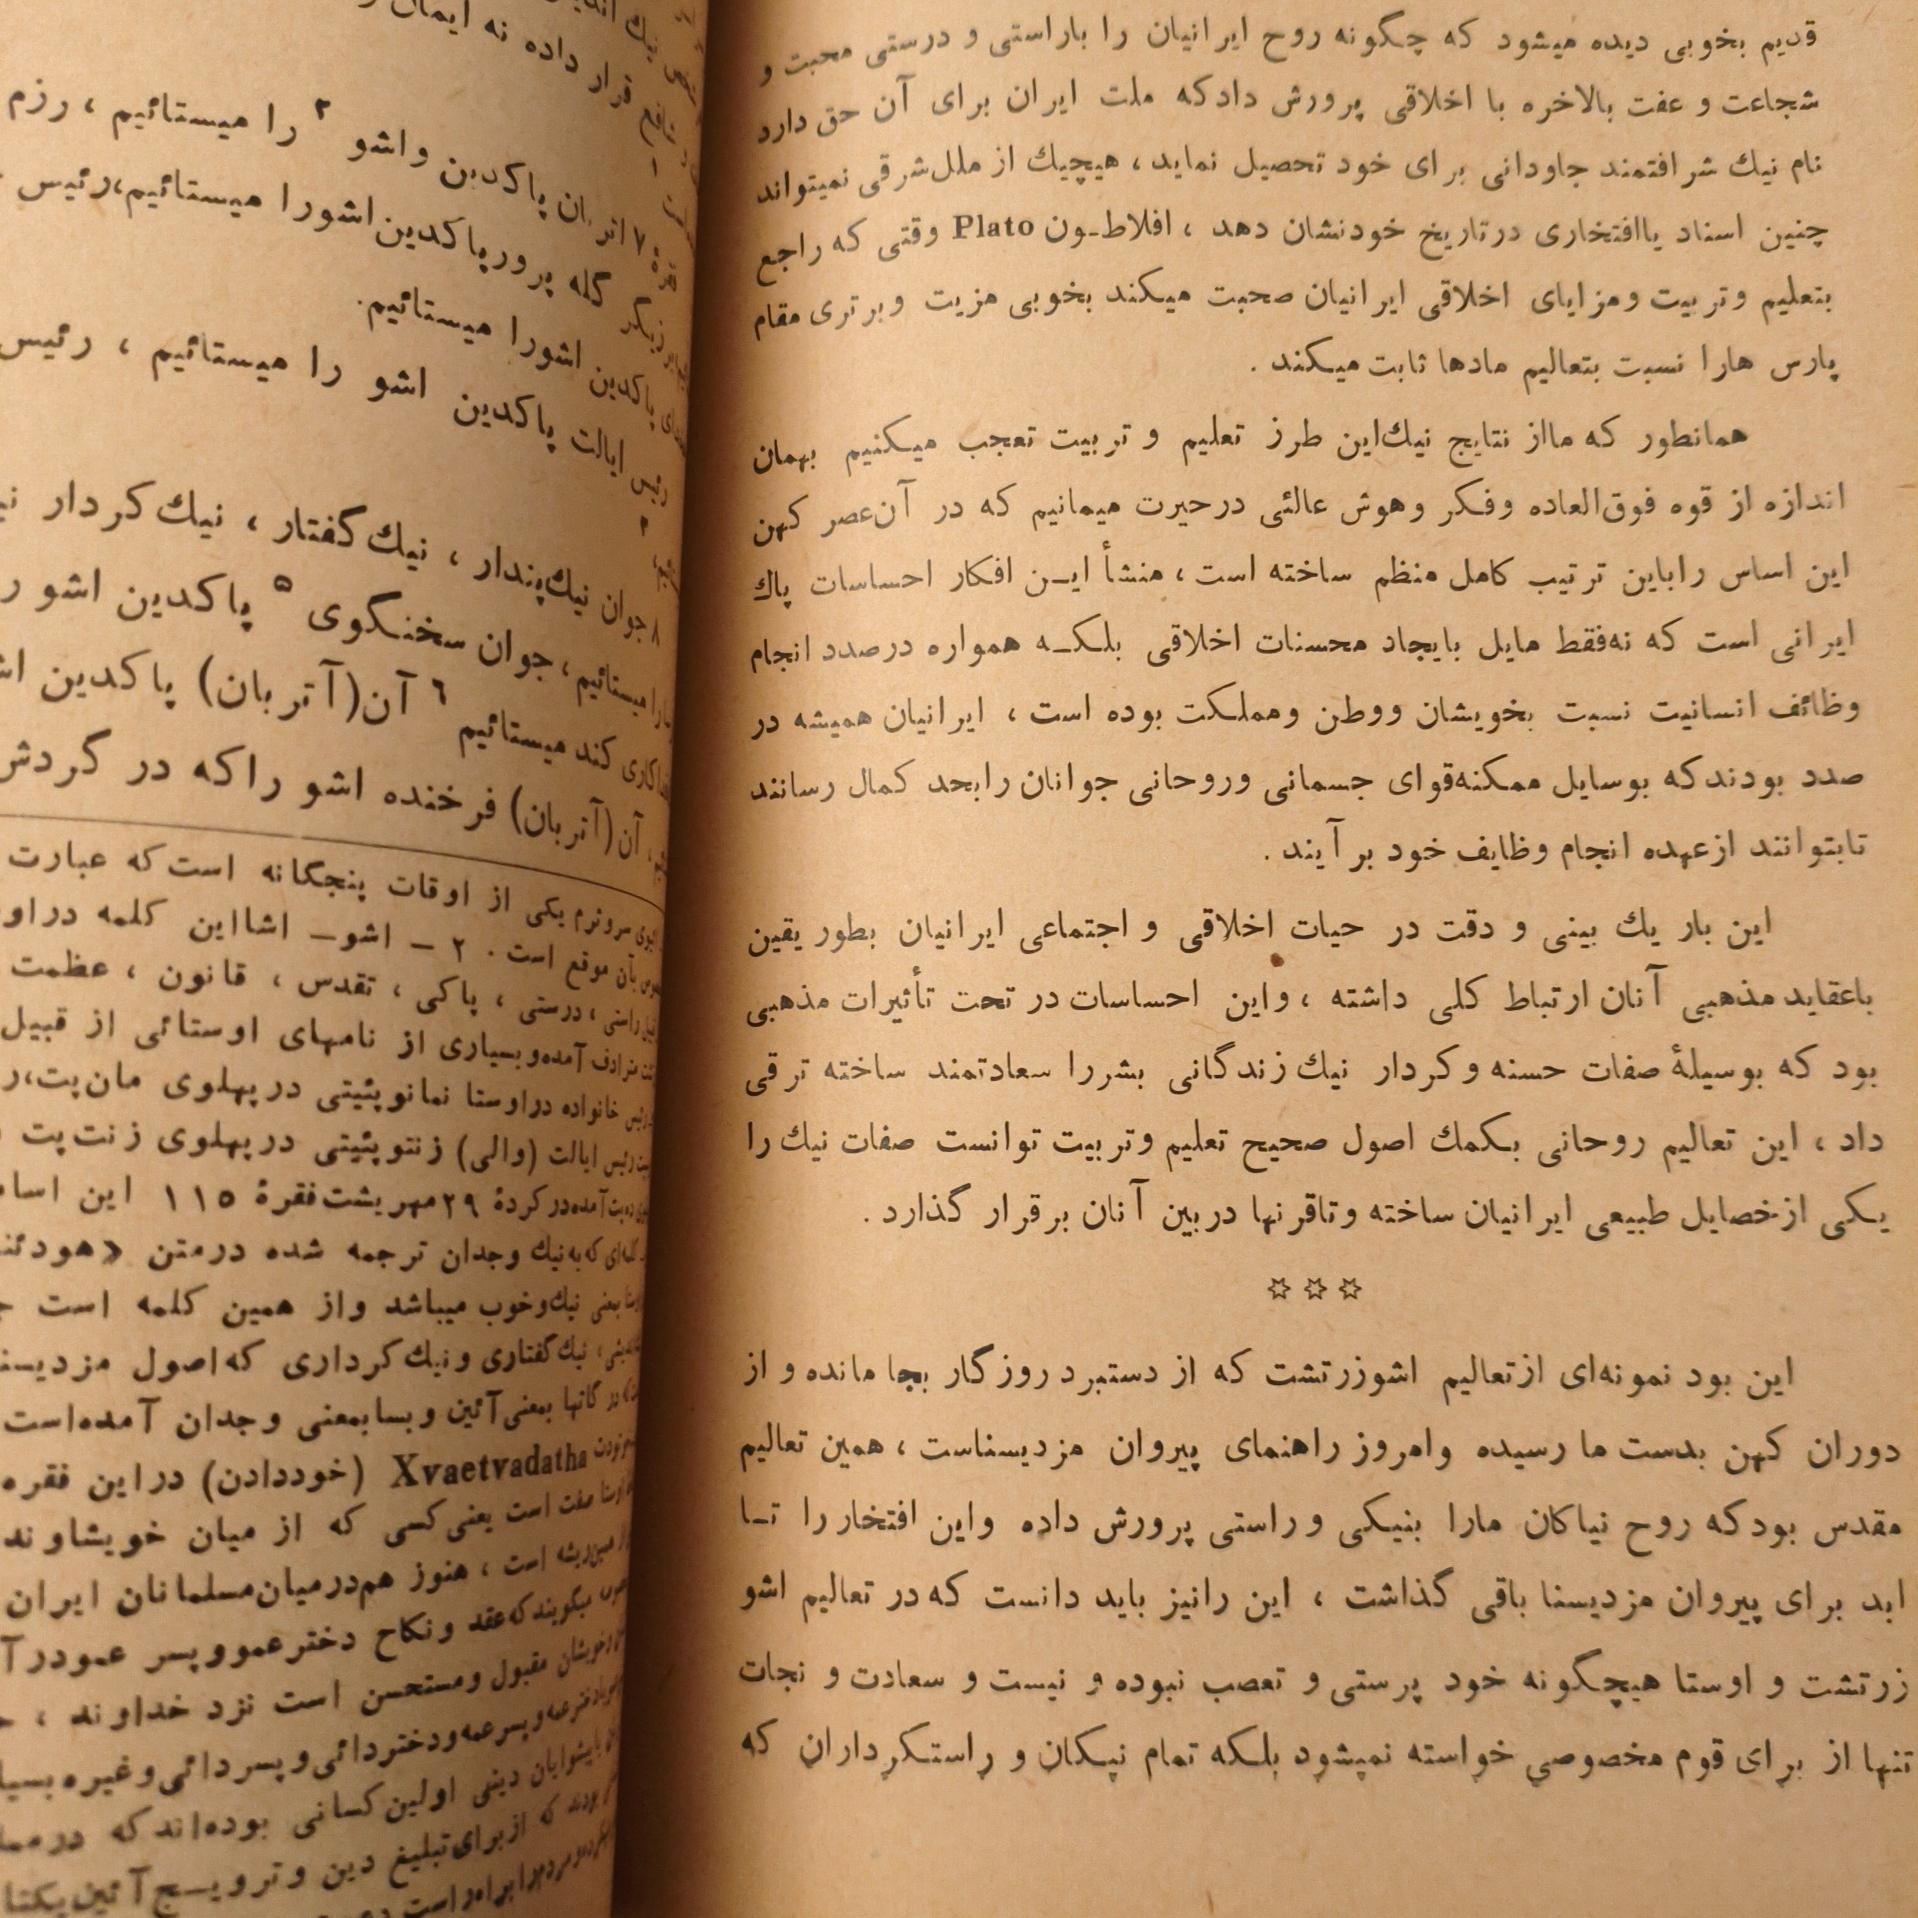 قدیم بخوبی دیده میشود که چگونه روح ایرانیان را باراستی و درستی محبت و
شجاعت و عفت بالاخره با اخلاقی پرورش دادکه ملت ایران برای آن حق دارد
نام نیك شرافتمند جاودانی برای خود تحصیل نماید ، هیچیك از ملل شرقی نمیتواند
چنین اسناد یاافتخاری درتاریخ خودنشان دهد ، افلاطـون Plato وقتی که راجع
بتعلیم وتربیت ومزایای اخلاقی ایرانیان صحبت میکند بخوبی مزیت وبرتری مقام
پارس هارا نسبت بتعالیم مادها ثابت میکند .
همانطور که مااز نتایج نیك‌این طرز تعلیم و تربیت تعجب میکنیم بهمان
اندازه از قوه فوق‌العاده وفکر وهوش عالئی درحیرت میمانیم که در آن‌عصر کهن
این اساس راباین ترتیب کامل منظم ساخته است ، منشأ ایـن افکار احساسات پاك
ایرانی است که نه‌فقط مایل بایجاد محسنات اخلاقی بلکـه همواره درصدد انجام
وظائف انسانیت نسبت بخویشان ووطن ومملکت بوده است ، ایرانیان همیشه در
صدد بودندکه بوسایل ممکنه‌قوای جسمانی وروحانی جوانان رابحد کمال رسانند
تابتوانند ازعهده انجام وظایف خود برآیند .
این باریك بینی و دقت در حیات اخلاقی و اجتماعی ایرانیان بطور یقین
باعقاید مذهبی آنان ارتباط کلی داشته ، واین احساسات در تحت تأثیرات مذهبی
بود که بوسیلهٔ صفات حسنه وکردار نیك زندگانی بشررا سعادتمند ساخته ترقی
داد ، این تعالیم روحانی بکمك اصول صحیح تعلیم وتربیت توانست صفات نیك را
یکی ازخصایل طبیعی ایرانیان ساخته وتاقرنها دربین آنان برقرار گذارد .
✩ ✩ ✩
این بود نمونه‌ای ازتعالیم اشوزرتشت که از دستبرد روزگار بجا مانده و از
دوران کهن بدست ما رسیده وامروز راهنمای پیروان مزدیسناست ، همین تعالیم
مقدس بودکه روح نیاکان مارا بنیکی وراستی پرورش داده واین افتخار را تـا
ابد برای پیروان مزدیسنا باقی گذاشت ، این رانیز باید دانست که در تعالیم اشو
زرتشت و اوستا هیچگونه خود پرستی و تعصب نبوده و نیست و سعادت و نجات
تنها از برای قوم مخصوصی خواسته نمیشود بلکه تمام نیکان و راستکرداران که
قرار داده نه ایمان
پاکدین واشو ۲ را میستائیم ، رزم
گله پرورپاکدین اشورا میستائیم،رئیس
پاکدین اشورا میستائیم.
ایالت پاکدین اشو را میستائیم ، رئیس
۸ جوان نیك‌پندار ، نیك‌گفتار ، نیك‌کردار
را میستائیم ، جوان سخنگوی ۵ پاکدین اشو
کند میستائیم ۶ آن(آتربان) پاکدین
آن(آتربان) فرخنده اشو راکه در گردش
یکی از اوقات پنجگانه است‌که عبارت
بآن موقع است . ۲ – اشو– اشااین کلمه
راستی ، درستی ، پاکی ، تقدس ، قانون ، عظمت
مترادف آمده‌وبسیاری از نامهای اوستائی از قبیل
رئیس خانواده دراوستا نمانوپئیتی درپهلوی مان‌پت،
رئیس ایالت (والی) زنتوپئیتی درپهلوی زنت‌پت
آمده‌درکردهٔ ۲۹مهریشت‌فقرهٔ ۱۱۵ این
که‌به‌نیك وجدان ترجمه شده درمتن
بمعنی نیك‌وخوب میباشد واز همین کلمه است
نیك‌گفتاری ونیك‌کرداری که‌اصول
گاتها بمعنی‌آئین وبسابمعنی وجدان آمده‌است
Xvaetvadatha (خوددادن) دراین فقره
صفت است یعنی‌کسی که از میان خویشاوند
است ، هنوز هم‌درمیان‌مسلمانان ایران
میگویندکه‌عقد ونکاح دخترعمووپسر
مقبول ومستحسن است نزد خداوند ،
ودختردائی‌وپسردائی‌وغیره
دینی اولین‌کسانی بوده‌اندکه
که ازبرای‌تبلیغ دین وترویـج‌آئین‌یکتا